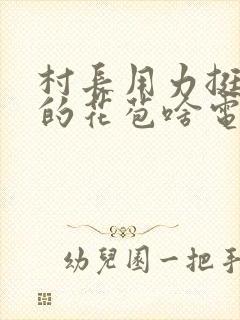 村長用力挺
的花苞啥電
幼兒園一把手